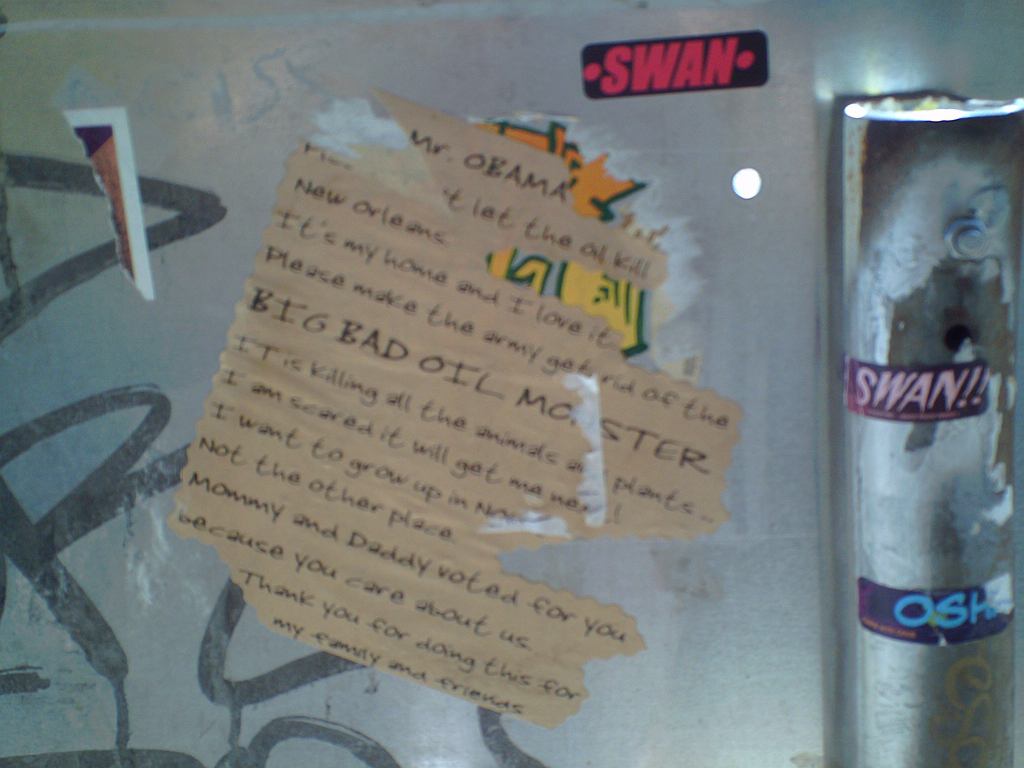 SWAN
Mr. OBAMA
't let the oil kill
New Orleans
It's my home and I love it.
Please make the army get rid of the
BIG BAD OIL MO STER
IT is killing all the animals a plants...
I am scared it will get me ne
I want to grow up in
Not the other place
Mommy and Daddy voted for you
because you care about us
Thank you for doing this for
my family and friends
SWAN!!
OSH